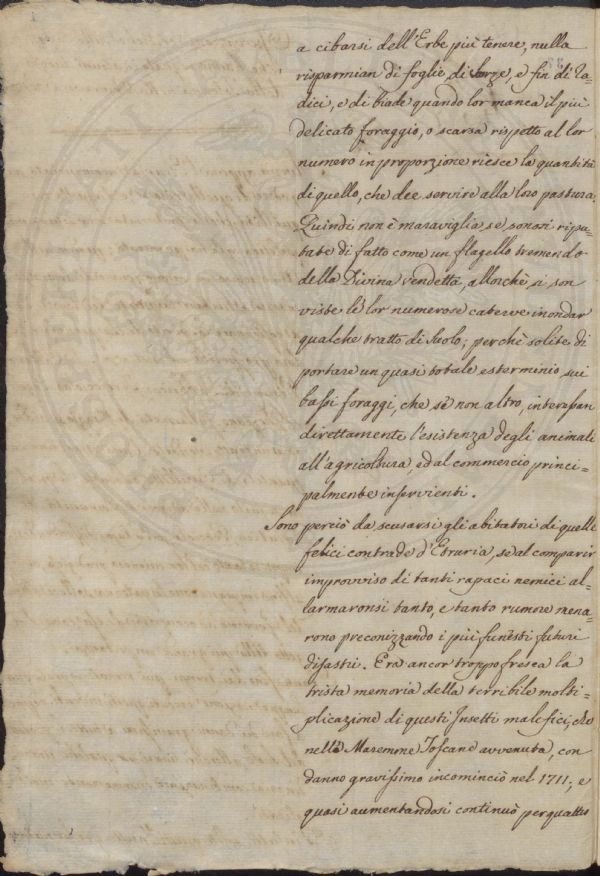 a cibarsi dell'Erbe più tenere, nulla
risparmian di foglie, di Sorze, e fin di Ra=
dici, e di biade quando lor manca il più
delicato foraggio, o scarsa rispetto al lor
numero in proporzione riesce la quantità
di quello, che dee servire alla loro pastura.
Quindi non è maraviglia se sonosi ripu=
tate di fatto come un flagello tremendo
della Divina vendetta, allorchè si son
viste le lor numerose caterve inondar
qualche tratto di suolo; perchè solite di
portare un quasi totale esterminio sui
bassi foraggi, che se non altro, interessan
direttamente l'esistenza degli animali
all'agricoltura, ed al commercio princi=
palmente inservienti.
Sono perciò da scusarsi gli abitatori di quelle
felici contrade d'Etruria, se al comparir
improvviso di tanti rapaci nemici al=
larmaronsi tanto, e tanto rumore mena=
rono preconizzando i più funesti futuri
disastri. Era ancor troppo fresca la
trista memoria della terribile molti=
plicazione di questi Insetti malefici, che
nelle Maremme Toscane avvenuta, con
danno gravissimo incominciò nel 1711; e
quasi aumentandosi continuò per quattro